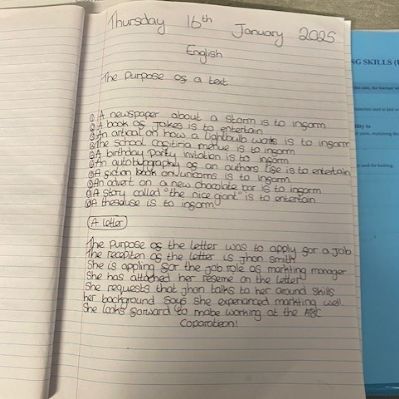 Thursday 16th January 2025
English
The Purpose os a text
① A newspaper about a storm is to insorm
② A book os Jokes is to entertain
③ An artical on how a lightbulb works is to insorm
④ The school casitiria menue is to insorm
⑤ A birthday Party invitation is to insorm
⑥ An autobiography os an authors lise is to entertain
⑦ A siction book on unicorns is to insorm
⑧ An advert on a new chocolate bar is to insorm
⑨ A story called "the nice giant" is to entertain
⑩ A thesaluse is to insorm
A letter
The Purpose os the letter was to apply sor a Job
The recepten os the letter is jhon smith
She is appling sor the job role as markting manager
She has attatched her reseme on the letter
She requests that jhon talks to her around skills
her background says she experianced markting well
She looks sorward to mabe working at the ABC
Coparateon!
NG SKILLS